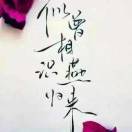 似曾相
识燕
归来